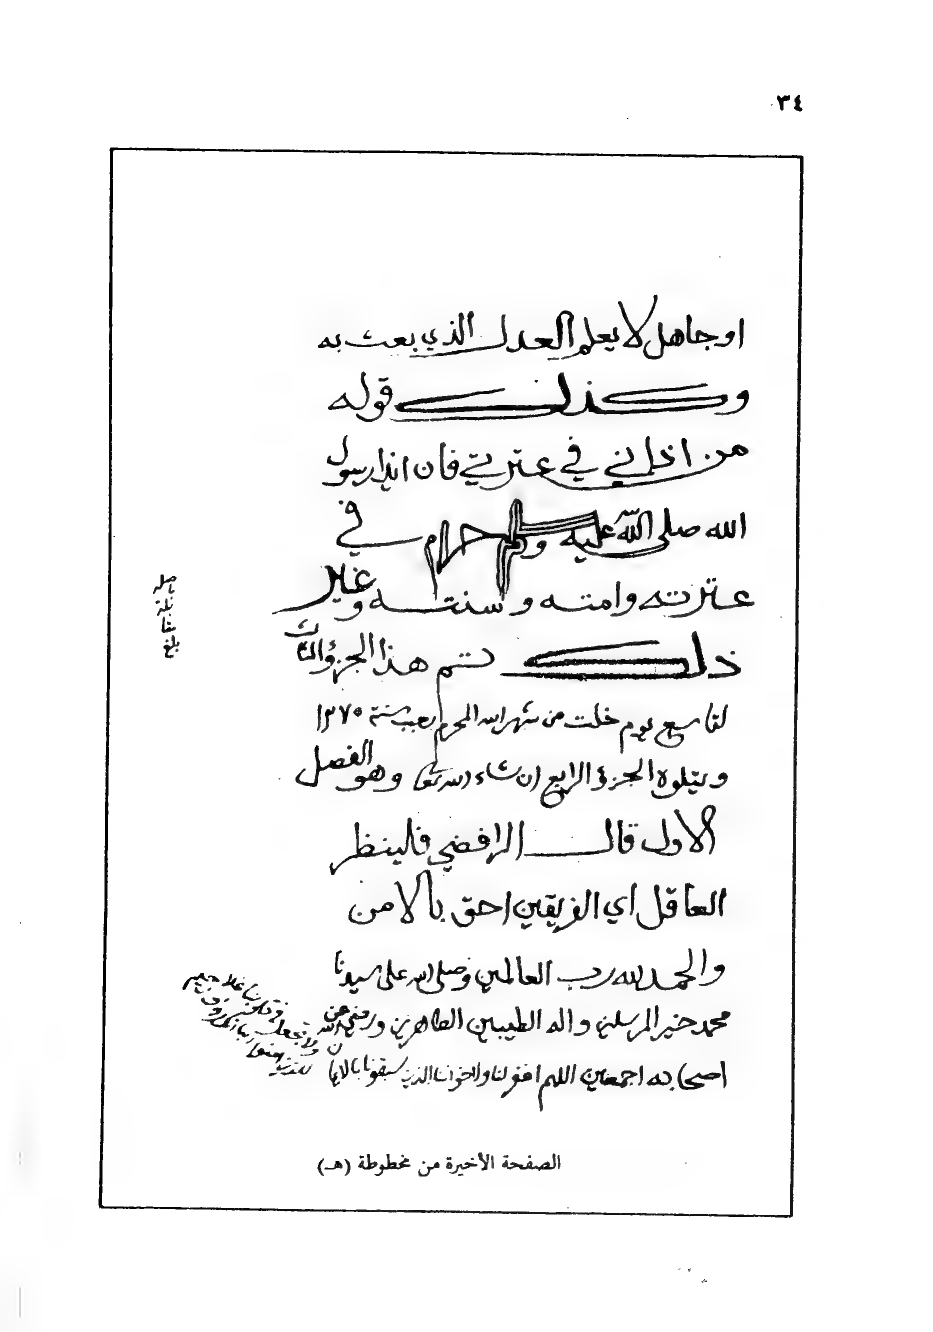 ٣٤
او جاهل لا يعلم العدل الذي بعث به
وكذلك قوله
من اذاني في عترتي فان اذا رسول
الله صلى الله عليه وسلم حرام في
عترته وامته وسنته وغير
ذلك تم هذا الجزؤ الثالث
لتاسع يوم خلت من شهر الله المحرم رجب سنة ١٣٧٥
ويتلوه الجزؤ الرابع ان شاء الله تعا وهو الفصل
الاول قال الرافضي فلينظر
العاقل اي الفريقين احق بالامن
والحمد لله رب العالمين وصلى الله على سيدنا
محمد خير المرسلين واله الطيبين الطاهرين ورضي الله عن
اصحابه اجمعين اللهم اغفر لنا ولاخواننا الذين سبقونا بالايمان
ولا تجعل في قلوبنا غلا
للذين امنوا ربنا انك رؤف رحيم
بلغ
مقا
بلة
باصله
الصفحة الأخيرة من مخطوطة (هـ)